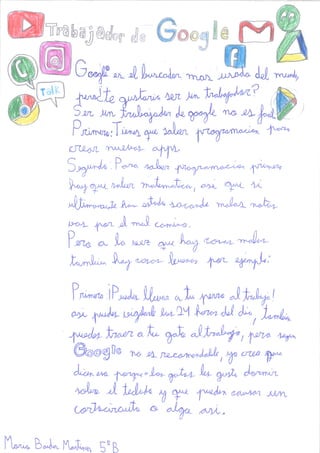 Trabajador de Google
Talk
Google es el buscador mas usado del mundo,
pero ¿te gustaria ser un trabajador?
Ser un trabajador de google no es facil
Primero: Tienes que saber programacion para
crear nuevas apps.
Segundo. Para saber programacion primero
hay que saber matematica, asi que si
ultimamente has estado sacando malas notas
vas por el mal camino.
Pero a la vez que hay cosas malas
tambien hay cosas buenas por ejemplo:
Primero ¡Puedes llevar a tu perro al trabajo!
asi puedes vigilarlo las 24 horas del dia, tambien
puedes traer a tu gato al trabajo, pero segun
Google no es recomendable, yo creo que
dicen eso porque los gatos les gusta dormir
sobre el teclado y que pueden causar un
cortocircuito o algo asi.
5ºB